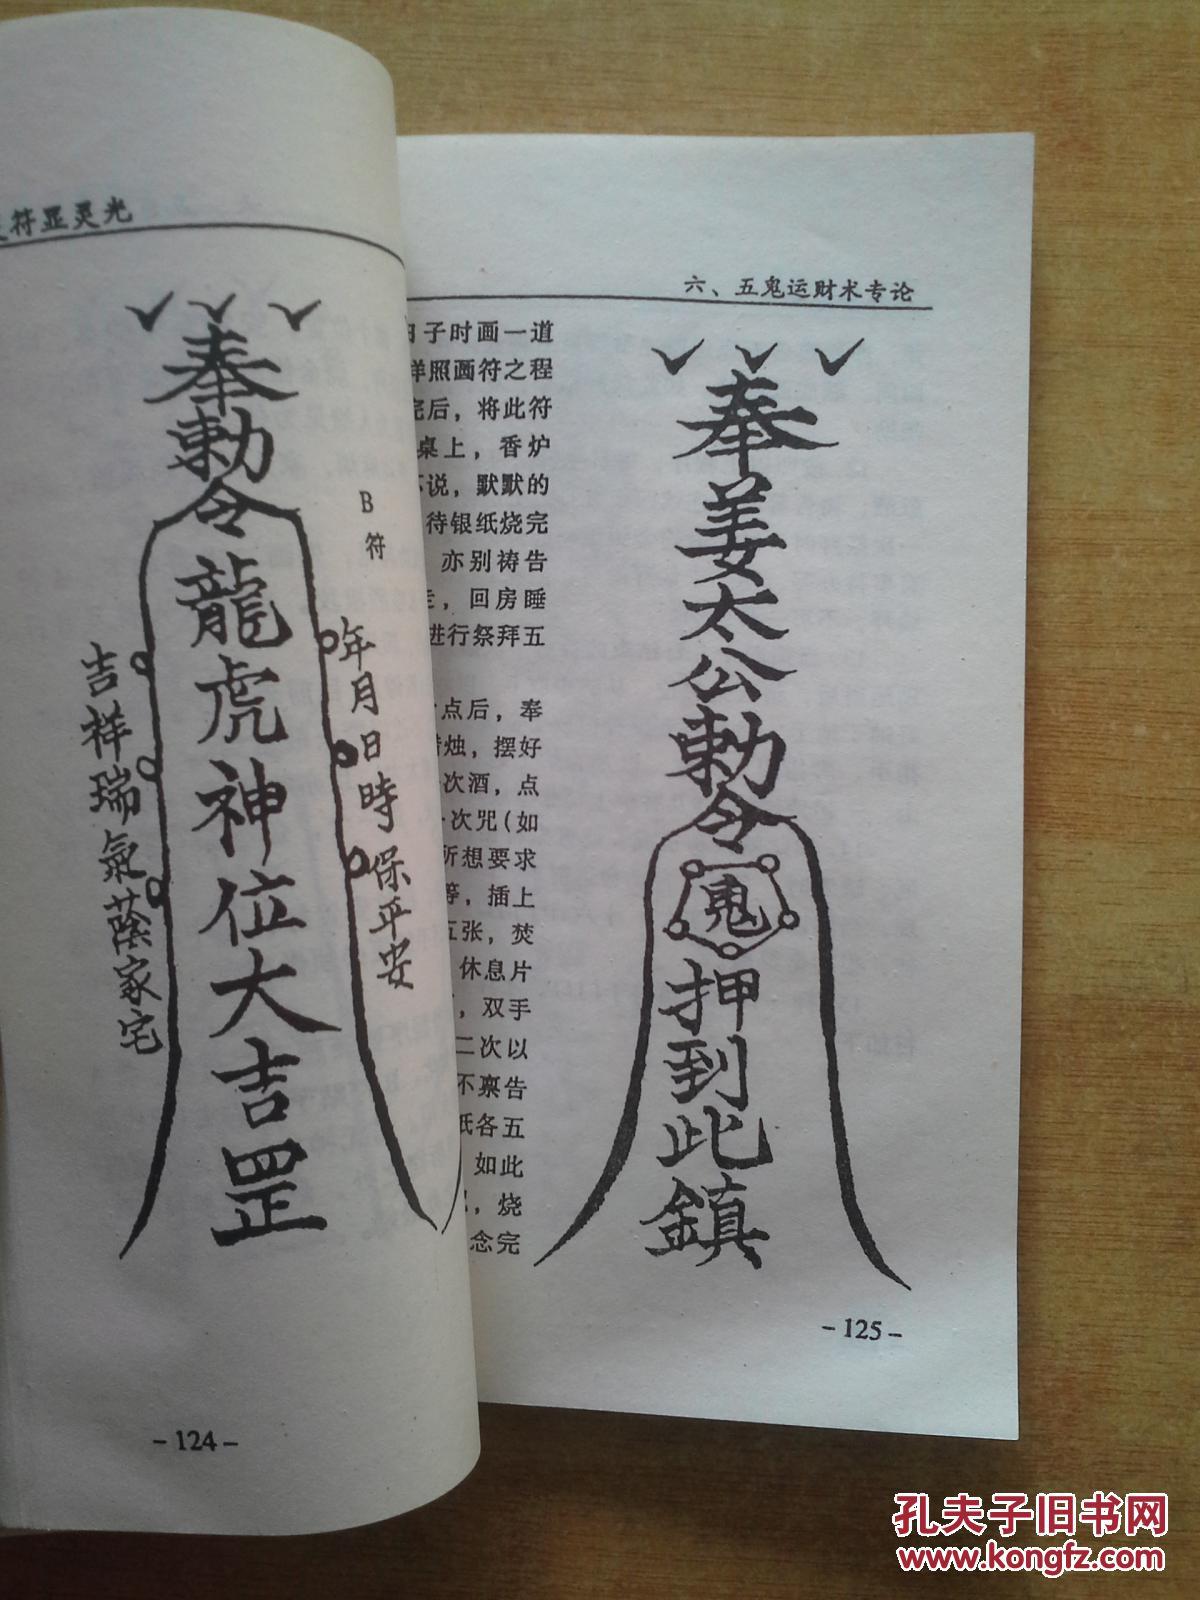 符显灵光
奉勅令龍虎神位大吉罡
B符
年月日時保平安
吉祥瑞氣蔭家宅
-124-
六、五鬼运财术专论
日子时画一道
样照画符之程
完后，将此符
桌上，香炉
不说，默默的
待银纸烧完
亦别祷告
走，回房睡
进行祭拜五
点后，奉
烛，摆好
次酒，点
次咒(如
所想要求
等，插上
五张，焚
休息片
，双手
二次以
不禀告
纸各五
如此
，烧
念完
奉姜太公勅令鬼押到此鎮
-125-
孔夫子旧书网
www.kongfz.com